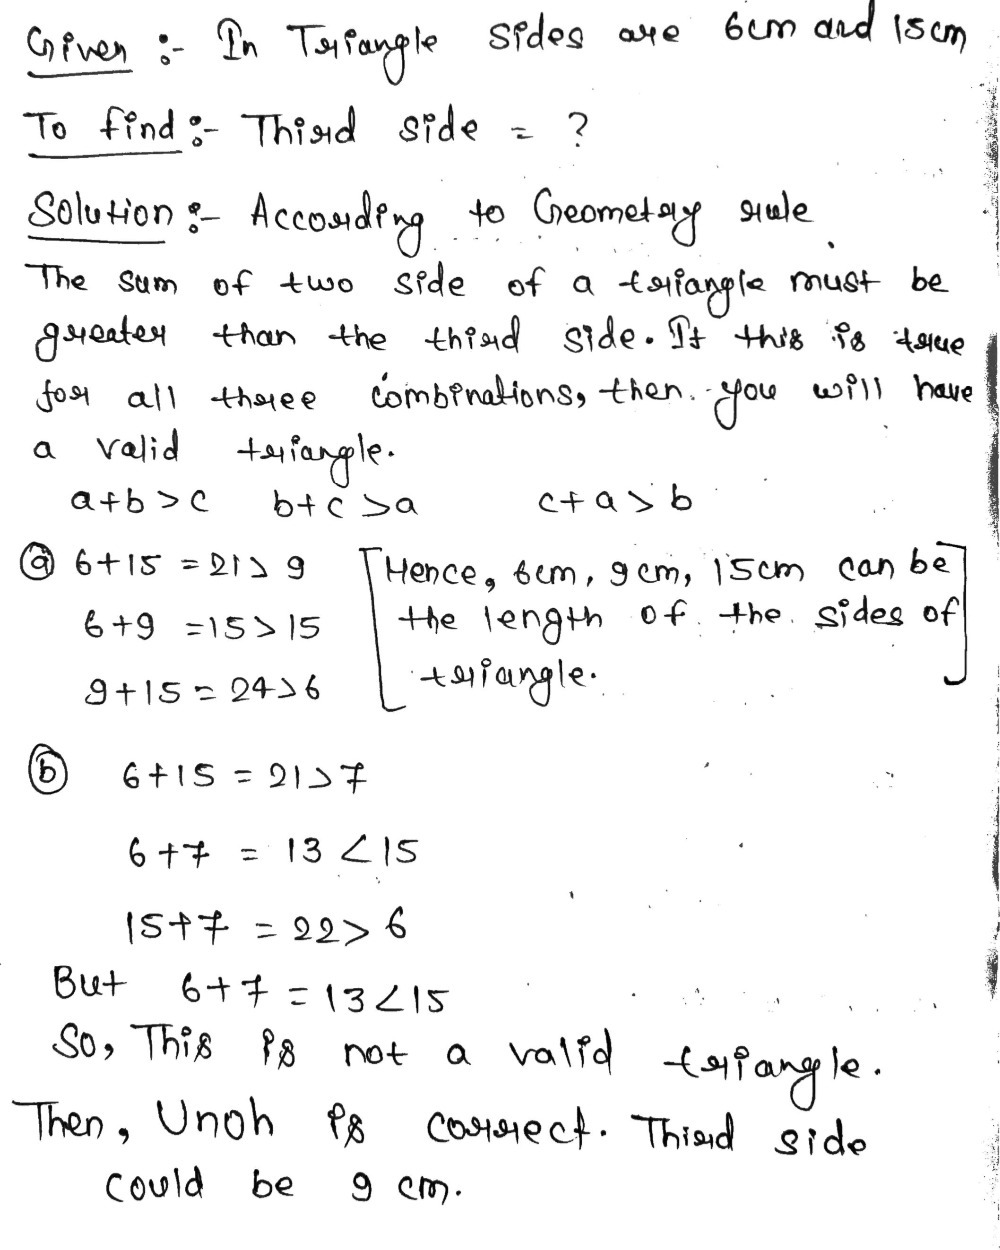 Given :- In Triangle sides are 6cm and 15cm
To find :- Third side = ?
Solution :- According to Geometry rule
The sum of two side of a triangle must be
greater than the third side. If this is true
for all three combinations, then you will have
a valid triangle.
a+b>c b+c>a c+a>b
(a) 6+15 = 21>9 [Hence, 6cm, 9cm, 15cm can be
6+9 =15>15 the length of the sides of
9+15 = 24>6 triangle.]
(b) 6+15 = 21>7
6+7 = 13<15
15+7 = 22>6
But 6+7 = 13<15
So, This is not a valid triangle.
Then, Unoh is correct. Third side
could be 9 cm.